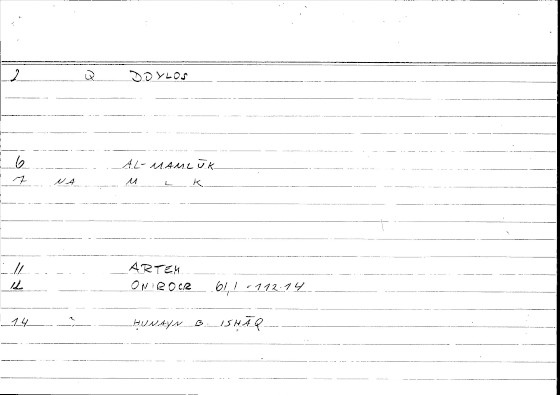 2 Q DOYLOS
6 AL-MAMLŪK
7 NA M L K
11 ARTEM
12 ONIROCR 61,1 - 112.14
14 ḤUNAYN B. ISḤĀQ